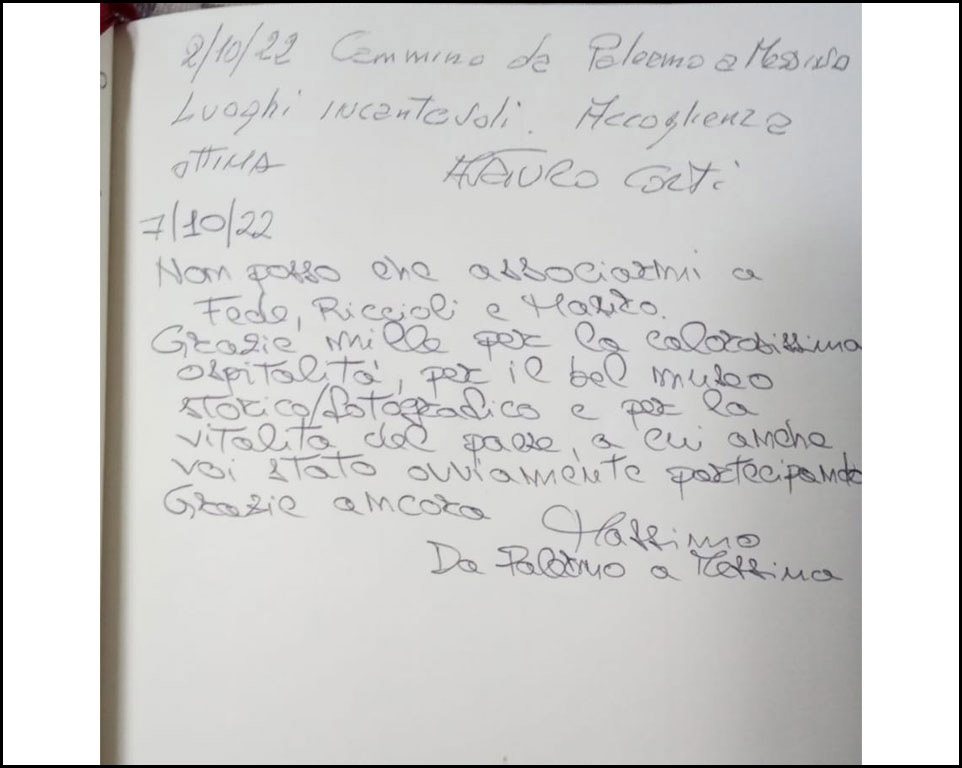 2/10/22 Cammino da Palermo a Messina
Luoghi incantevoli. Accoglienza
OTTIMA Corti
7/10/22
Non posso che associarmi a
Fede, Riccioli e Marito.
Grazie mille per la calorosissima
ospitalità, per il bel museo
storico/fotografico e per la
vitalità del paese, a cui anche
voi stato ovviamente partecipando
Grazie ancora Massimo
Da Palermo a Messina